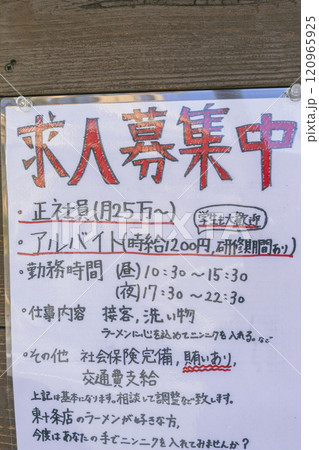 求人募集中
・正社員(月25万〜) 学生も大歓迎
・アルバイト(時給1200円, 研修期間あり)
・勤務時間 (昼)10:30〜15:30
(夜)17:30〜22:30
・仕事内容 接客, 洗い物
ラーメンに心を込めてニンニクを入れる。など
・その他 社会保険完備, 賄いあり,
交通費支給
上記は基本になります。相談して調整など致します。
東十条店のラーメンが好きな方,
今度はあなたの手でニンニクを入れてみませんか?
PIXTA
120965925